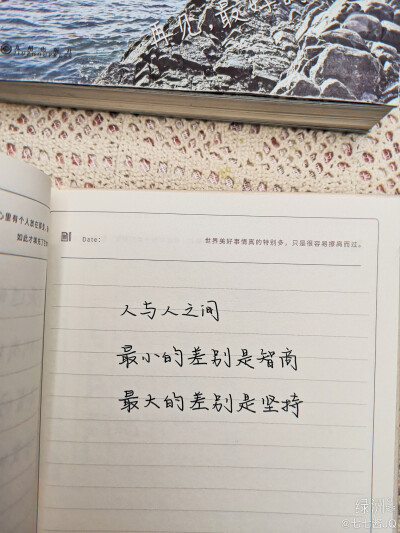 再见 最好
心里有个人放在那里，
Date:
世界美好事情真的特别多，只是很容易擦肩而过。
人与人之间
最小的差别是智商
最大的差别是坚持
绿洲